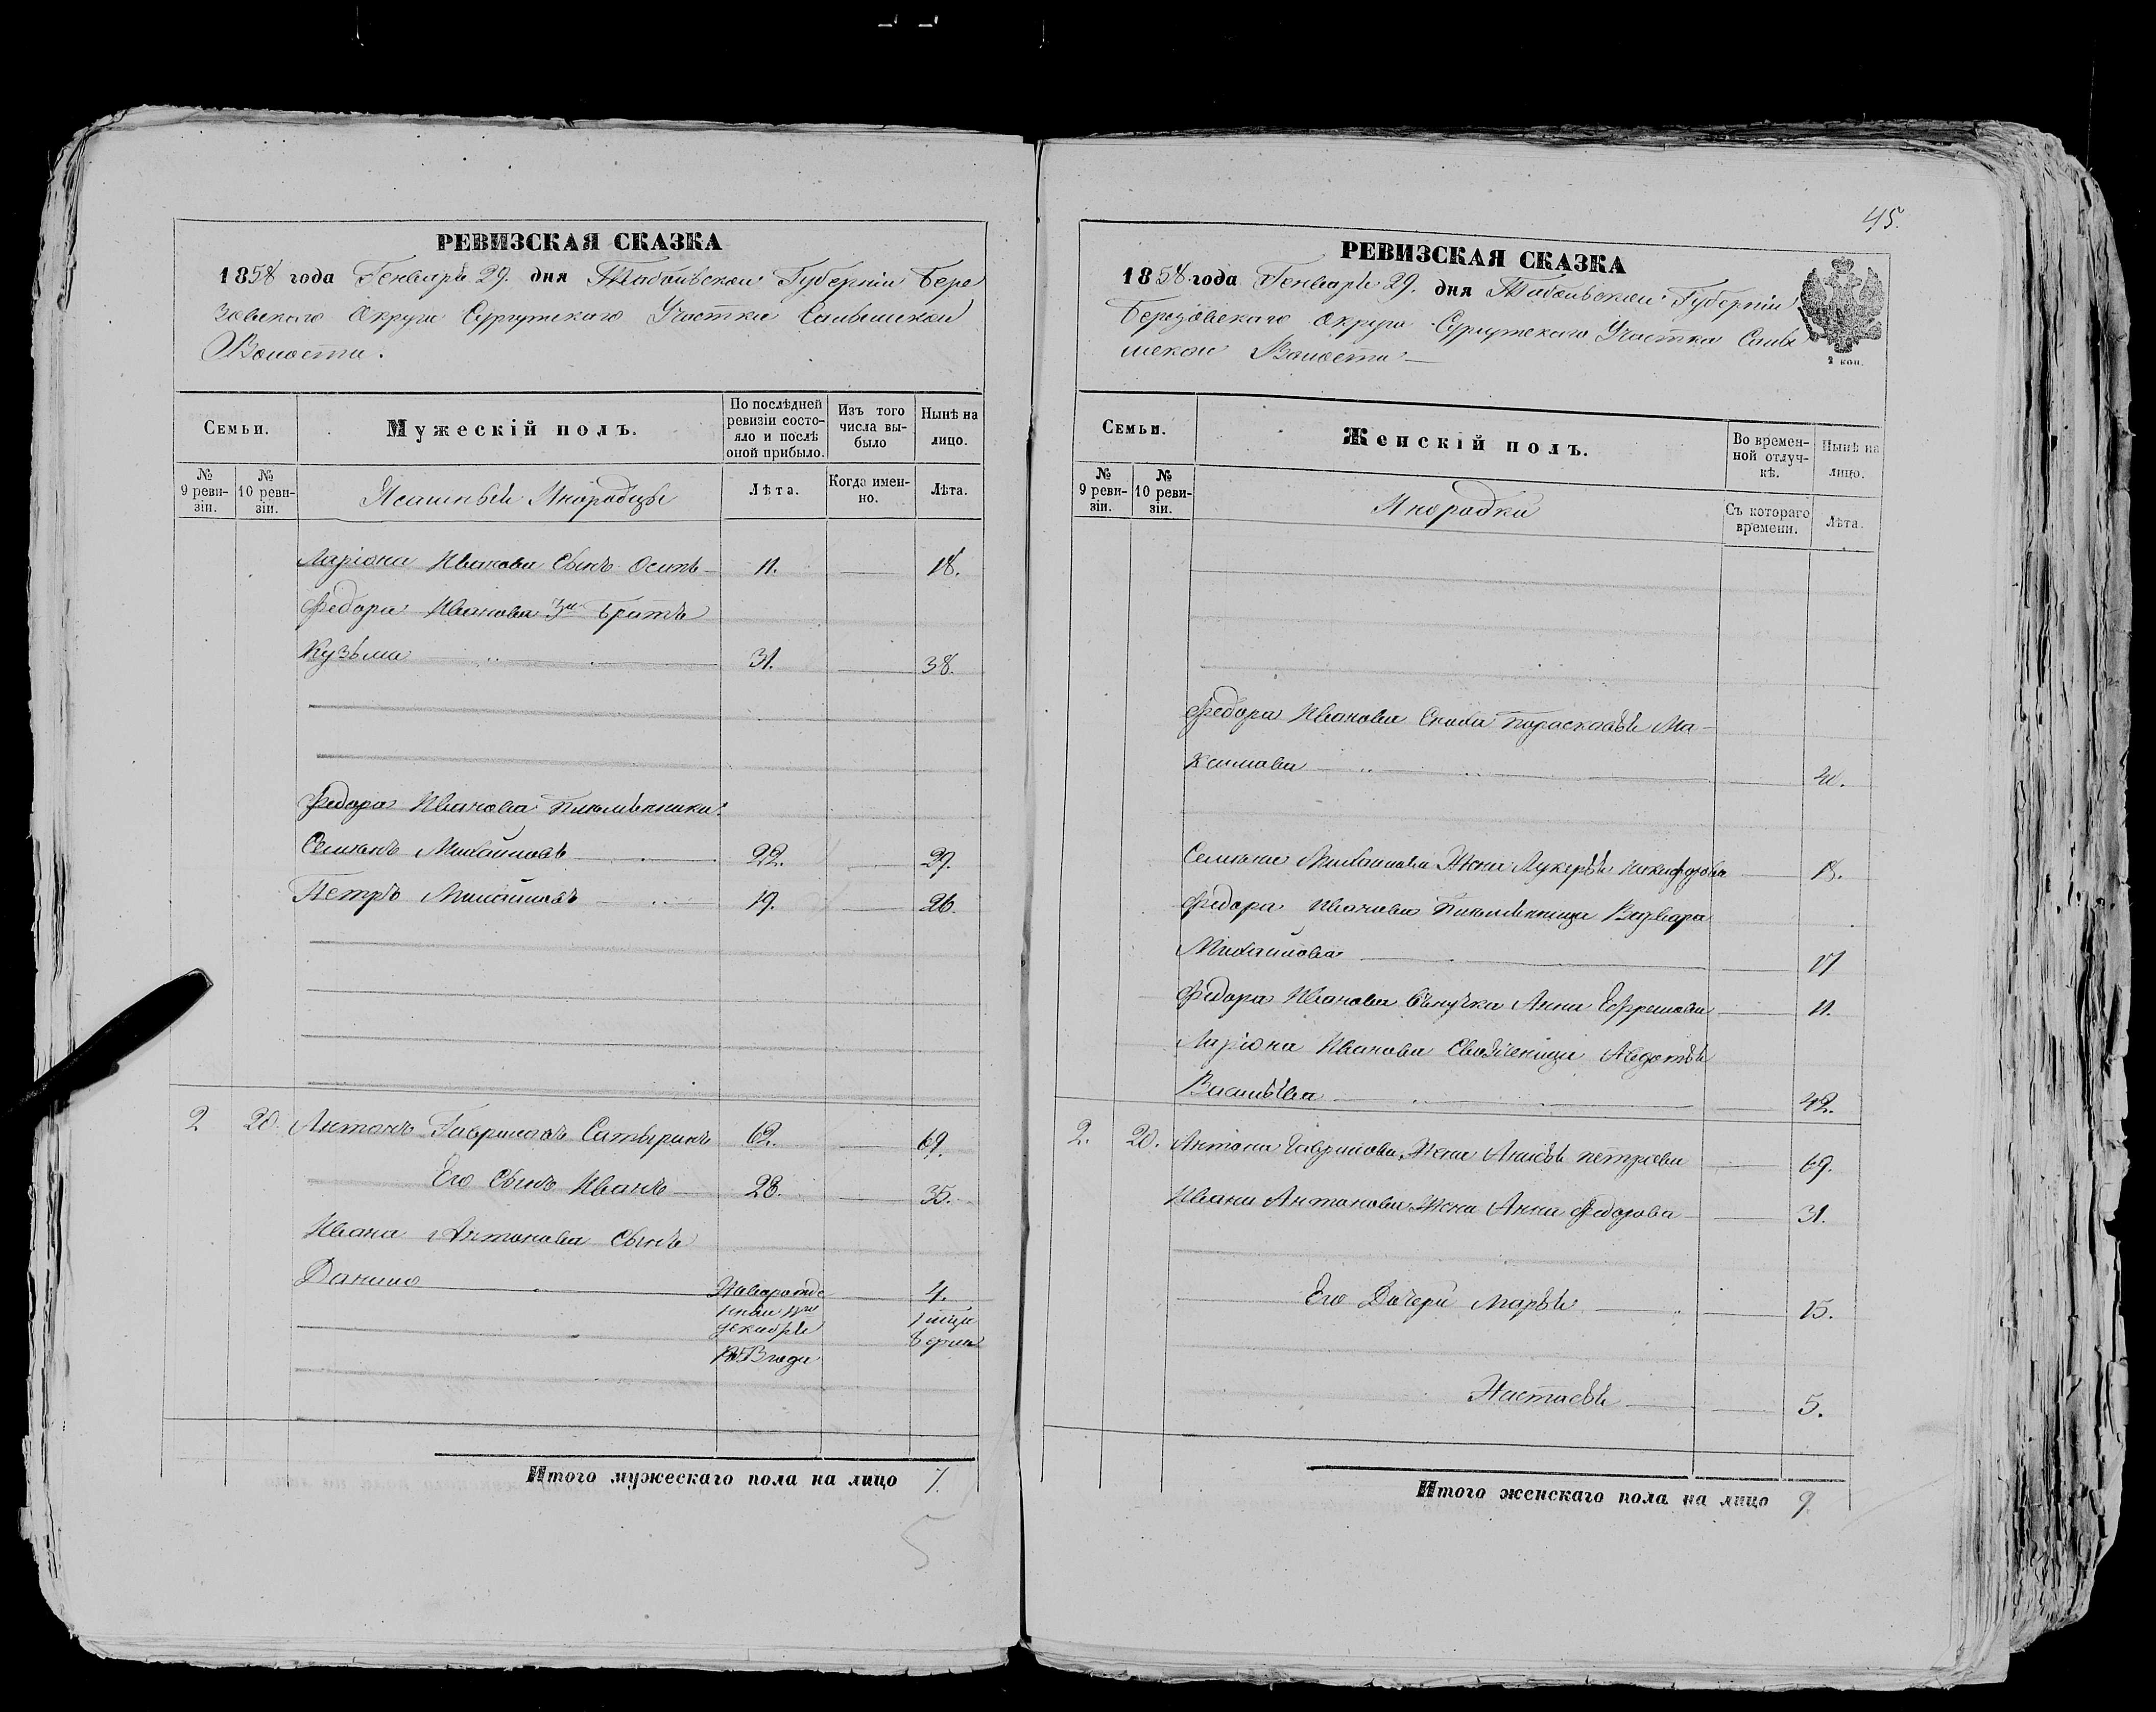 РЕВИЗСКАЯ СКАЗКА
1858 года Генваря 29. дня Тобольской Губернiи Бере
зовскаго Округа Сургутскаго Участка Салымской
Волости.
Семьи.
Мужескiй полъ.
По послѣдней ревизiи состояло и послѣ оной прибыло.
Изъ того числа выбыло
Нынѣ на лицо.
№ 9 ревизiи.
№ 10 ревизiи.
Ясашныи Инородцы
Лѣта.
Когда именно.
Лѣта.
Ларiона Иванова Сынъ Осипъ 11. 18.
Федора Иванова 3й Братъ
Кузьма 31. 38.
Федора Иванова Племянники:
Семіонъ Михайловъ 22. 29.
Петръ Михайловъ 19. 26.
2 20. Антонъ Гавриловъ Сатыринъ 62. 69.
Его Сынъ Иванъ 28. 35.
Ивана Антонова Сынъ
Данило 4.
декабря
года
Итого мужескаго пола на лицо 7.
5
45.
РЕВИЗСКАЯ СКАЗКА
1858 года Генваря 29. дня Тобольской Губернiи
Березовскаго Округа Сургутскаго Участка Салы
мской Волости
2 коп.
Семьи.
Женскiй полъ.
Во временной отлучкѣ.
Нынѣ на лицо.
№ 9 ревизiи.
№ 10 ревизiи.
Инородки
Съ котораго времени.
Лѣта.
Федора Иванова Сноха Парасковья Ма-
ксимова
Семіона Михайлова Жена Лукерья Никифорова 18.
Федора Иванова Племянница Варвара
Михайлова 17
Федора Иванова Внучка Анна Ефремова 11.
Ларiона Иванова Свояченица Авдотья
Васильева 42.
2. 20. Антона Гаврилова Жена Анисья Петрова 69.
Ивана Антонова Жена Анна Федорова 31.
Его Дочери Марья 15.
Настасья 5.
Итого женскаго пола на лицо 9.